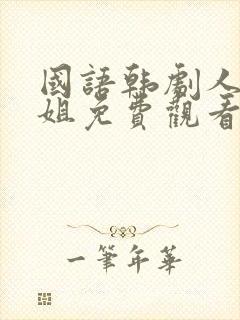 國語韩劇人
姐免費觀看
一筆年華